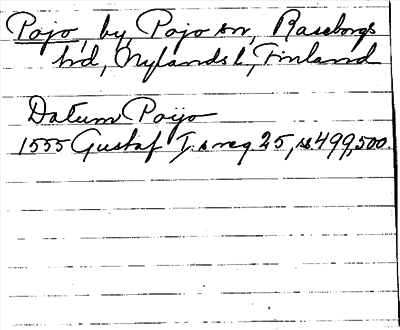 Pojo, by, Pojo sn, Raseborgs
hd, Nylands l., Finland
Datum Poÿo
1555 Gustaf I.s reg. 25, s. 499, 500.